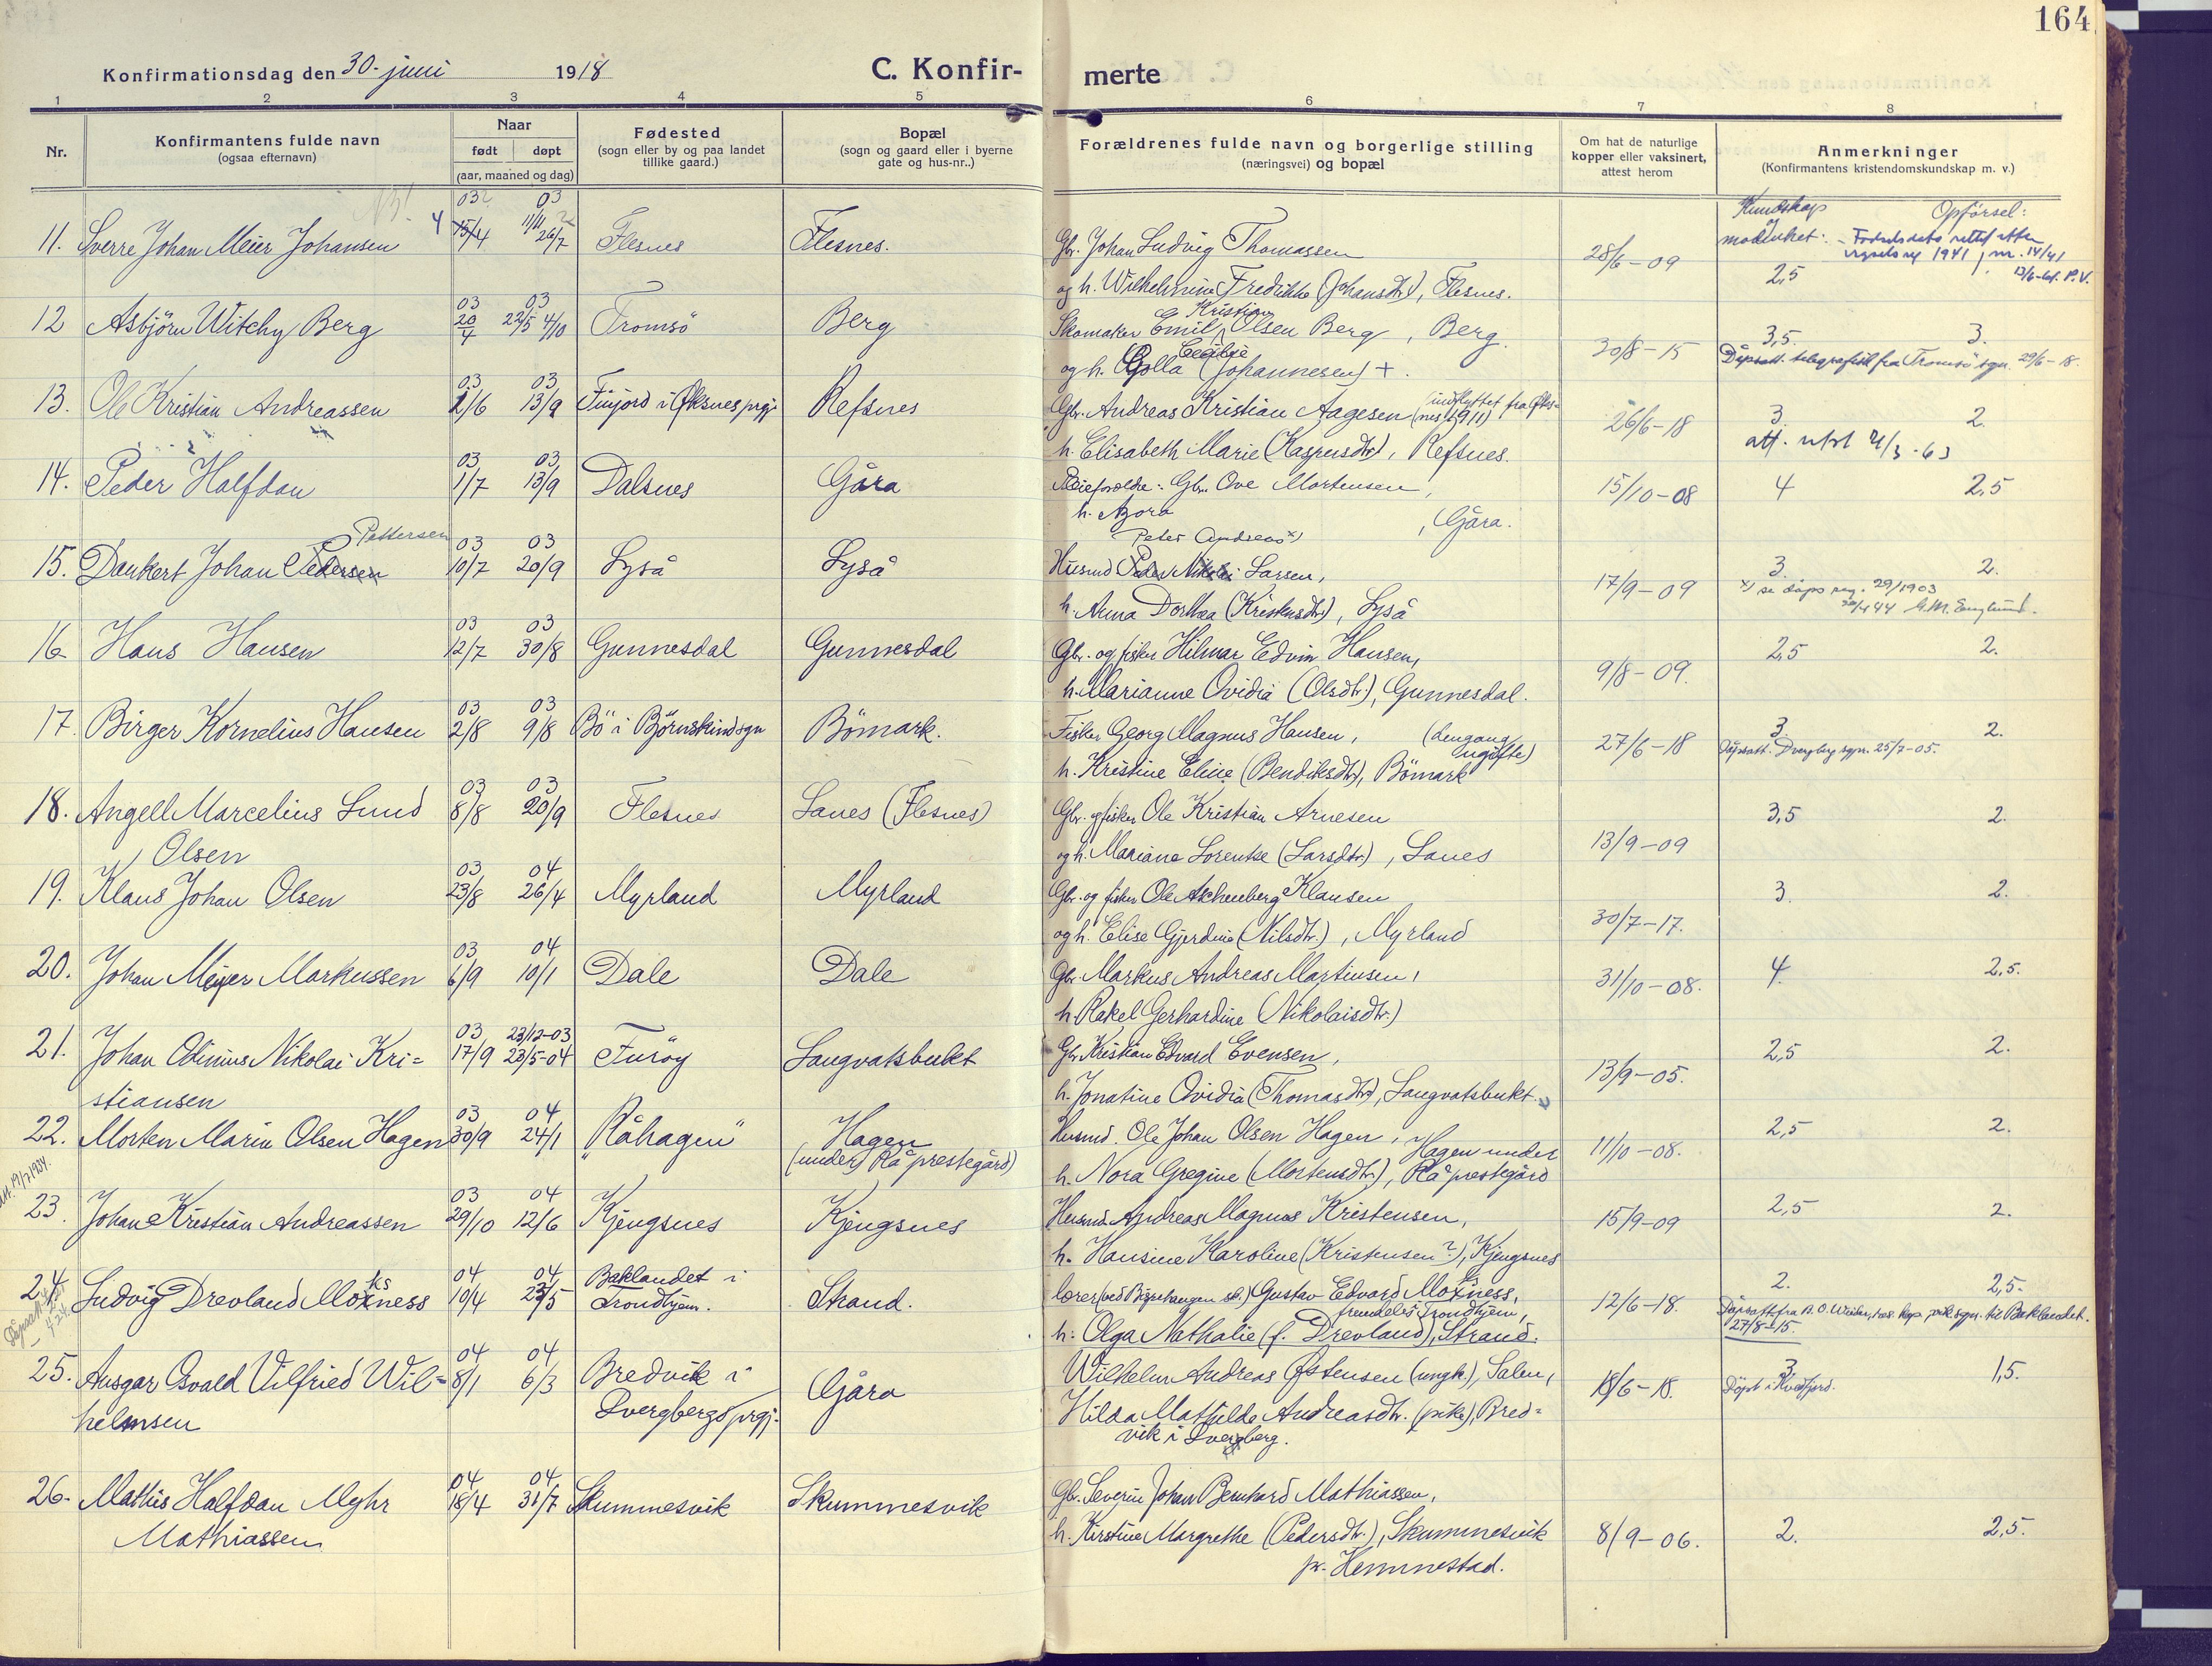 164
Konfirmationsdag den 30. juni 1918
C. Konfir- merte
1 2 3 4 5 6 7 8
Nr.
Konfirmantens fulde navn
(ogsaa efternavn)
Naar
født døpt
(aar, maaned og dag)
Fødested
(sogn eller by og paa landet
tillike gaard.)
Bopæl
(sogn og gaard eller i byerne
gate og hus-nr..)
Forældrenes fulde navn og borgerlige stilling
(næringsvei) og bopæl
Om hat de naturlige
kopper eller vaksinert,
attest herom
Anmerkninger
(Konfirmantens kristendomskundskap m. v.)
Kundskap og modenhet: Opförsel:
11. Sverre Johan Meier Johansen 4 03 15/4 03 11/11 26/7 Flesnes Flesnes.
Gbr. Johan Ludvig Thomassen
og h. Wilhelmine Fredrikke (Johansdtr), Flesnes.
28/6-09 2,5
Fødselsdato rettet etter
1941, nr. 14/41
P.V.
12 Asbjörn Witchy Berg 03 20/4 03 22/5 4/10 Tromsö Berg
Skomaker Emil Kristian Olsen Berg, Berg.
og h. Golla Cecilie (Johannesen) +.
30/8-15 3,5. 3.
Dåpsatt. telegrafisk fra Tromsö sgn. 29/6-18.
13. Ole Kristian Andreassen 03 2/6 03 13/9 Finjord i Øksnes prgj. Refsnes
Gbr. Andreas Kristian Aagesen (indflyttet fra Øks-
nes 1911)
h. Elisabeth Marie (Kaspersdtr), Refsnes.
26/6-18 3. 2.
att. utst 4/3-63
14. Peder Halfdan 03 1/7 03 13/9 Dalsnes Gåra
Pleieforeldre: Gbr. Ove Mortensen,
h. Nora, Gåra.
15/10-08 4 2,5
15. Dankert Johan Pedersen Pettersen 03 10/7 03 20/9 Lyså Lyså
Peter Andreas x)
Husmd Peder Nikolai Larsen,
h. Anna Dorthea (Kristensdtr), Lyså
17/9-09 3. 2.
x) se dåps reg. 29/1903
16. Hans Hansen 03 12/7 03 30/8 Gunnesdal Gunnesdal
Gbr. og fisker Hilmar Edvin Hansen,
h. Marianne Ovidia (Olsdtr.), Gunnesdal.
9/8-09. 2,5 2.
17. Birger Kornelius Hansen 03 2/8 03 9/8 Bö i Björnskind sgn Bömark.
Fisker Georg Magnus Hansen, (dengang
ugifte)
h. Kristine Eline (Bendiksdtr), Bömark
27/6-18 3. 2.
Dåpsatt. Dverberg sgn. 25/7-05.
18. Angell Marcelius Lund
Olsen 03 8/8 03 20/9 Flesnes Lanes (Flesnes)
Gbr. og fisker Ole Kristian Arnesen
og h. Mariane Lorentse (Larsdtr.), Lanes
13/9-09 3,5 2.
19. Klaus Johan Olsen 03 23/8 04 26/4 Myrland Myrland
Gbr. og fisker Ole Aschenberg Klausen
og h. Elise Gjerdine (Nilsdtr.), Myrland
30/7-17. 3. 2.
20. Johan Meyer Markussen 03 6/9 04 10/1 Dale Dale
Gbr. Markus Andreas Martinsen,
h. Rakel Gerhardine (Nikolaisdtr.)
31/10-08. 4. 2,5.
21. Johan Odinius Nikolai Kri=
stiansen 03 17/9 23/12-03 23/5-04 Furöy Langvatsbukt
Gbr Kristian Edvard Evensen,
h. Jonatine Ovidia (Thomasdtr), Langvatsbukt.
13/9-05. 2,5 2.
22. Morten Marin Olsen Hagen 03 30/9 04 24/1 "Råhagen" Hagen
(under) Rå prestegård)
Husmd. Ole Johan Olsen Hagen, Hagen under
h. Nora Gregine (Mortensdtr.), Rå prestegård
11/10-08. 2,5 2.
att. 19/7 1934.
23. Johan Kristian Andreassen 03 29/10 04 12/6 Kjengsnes Kjengsnes
Husmd. Andreas Magnus Kristensen,
h. Hansine Karoline (Kristensen?), Kjengsnes
15/9-09 2,5 2.
24. Ludvig Drevland Moxness ks 04 10/4 04 23/5 Baklandet i
Trondhjem. Strand.
lærer (ved Bispehaugen sk.) Gustav Edvard Moxness, ks
fremdeles Trondhjem,
h. Olga Nathalie (f. Drevland), Strand.
12/6-18. 2. 2,5.
til Baklandet.
27/8-15.
25. Ansgar Osvald Vilfried Wil=
helmsen 04 8/1 04 6/3 Bredvik i
Dvergbergs prgj. Gåra
Wilhelm Andreas Østensen (ungk.), Salen,
Hilda Mathilde Andreasdtr. (pike), Bred=
vik i Dverberg.
18/6-18. 3. 1,5.
Döpt i Kvædfjord.
26. Mathis Halfdan Myhr
Mathiassen 04 18/4 04 31/7 Skummesvik Skummesvik
Gbr. Severin Johan Bernhard Mathiassen,
h. Kirstine Margrethe (Pedersdtr.), Skummesvik
pr. Hemmestad.
8/9-06. 2. 2,5.